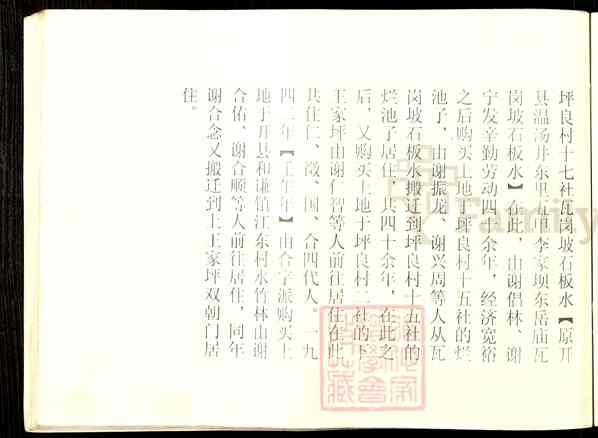 坪良村十七社瓦岗坡石板水【原开
县温汤井东里五甲李家坝东岳庙瓦
岗坡石板水】在此，由谢倡林、谢
宁发辛勤劳动四十余年，经济宽裕
之后购买土地，坪良村十五社的烂
池子，由谢振龙、谢兴周等人从瓦
岗坡石板水搬迁到坪良村十五社的
烂池子居住，共四十余年，在此之
后，又购买土地于坪良村二社的下
王家坪由谢仁智等人前往居住在此
共住仁、徵、国、合四代人。一九
四二年【壬午年】由合字派购买土
地于开县和谦镇江东村水竹林由谢
合佑、谢合顺等人前往居住，同年
谢合念又搬迁到上王家坪双朝门居
住。
Family